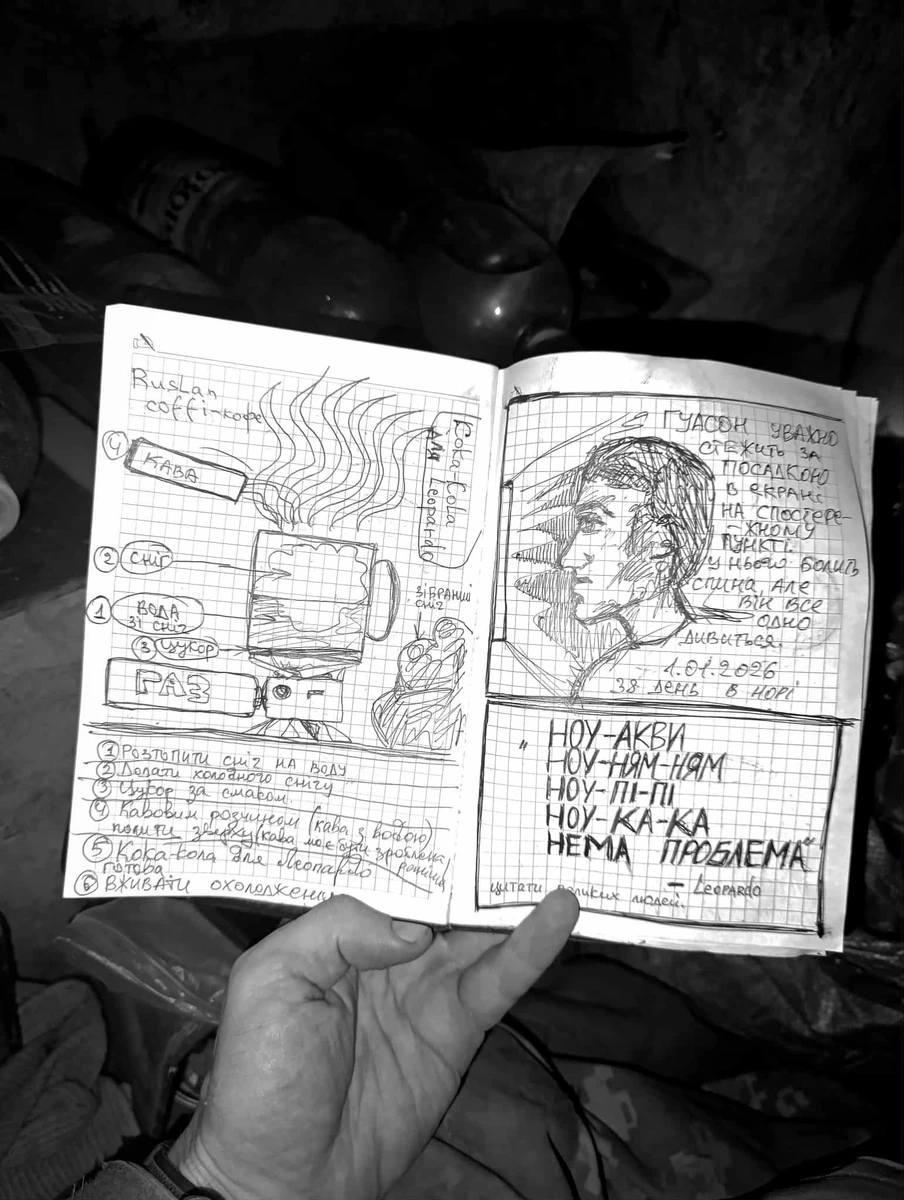 Ruslan
coffi-кофе
Koka Cola
для Leopardo
4
КАВА
2 СНІГ
1 ВОДА
ЗІ СНІГ
3 ЦУКОР
ГАЗ
ЗІБРАНИЙ
СНІГ
1 РОЗТОПИТИ СНІГ НА ВОДУ
2 Додати холодного снігу
3 Цукор за смаком.
4 Кавовим розчином (кава з водою)
полити зверху (кава має бути зроблена
раніше
5 Кока-кола для Леопардо
готова
6 ВЖИВАТИ ОХОЛОДЖЕНИМ
ГУАСОН УВАЖНО
СТЕЖИТЬ ЗА
ПОСАДКОЮ
В ЕКРАНІ
НА СПОСТЕРЕ-
-ЖНОМУ
ПУНКТІ.
У НЬОГО БОЛИТЬ
СПИНА, АЛЕ
ВІН ВСЕ
ОДНО
ДИВИТЬСЯ.
1.01.2026
38 ДЕНЬ В НОРІ
„ НОУ-АКВИ
НОУ-НЯМ-НЯМ
НОУ-ПІ-ПІ
НОУ-КА-КА
НЕМА ПРОБЛЕМА“
– Leopardo
цитати великих людей.